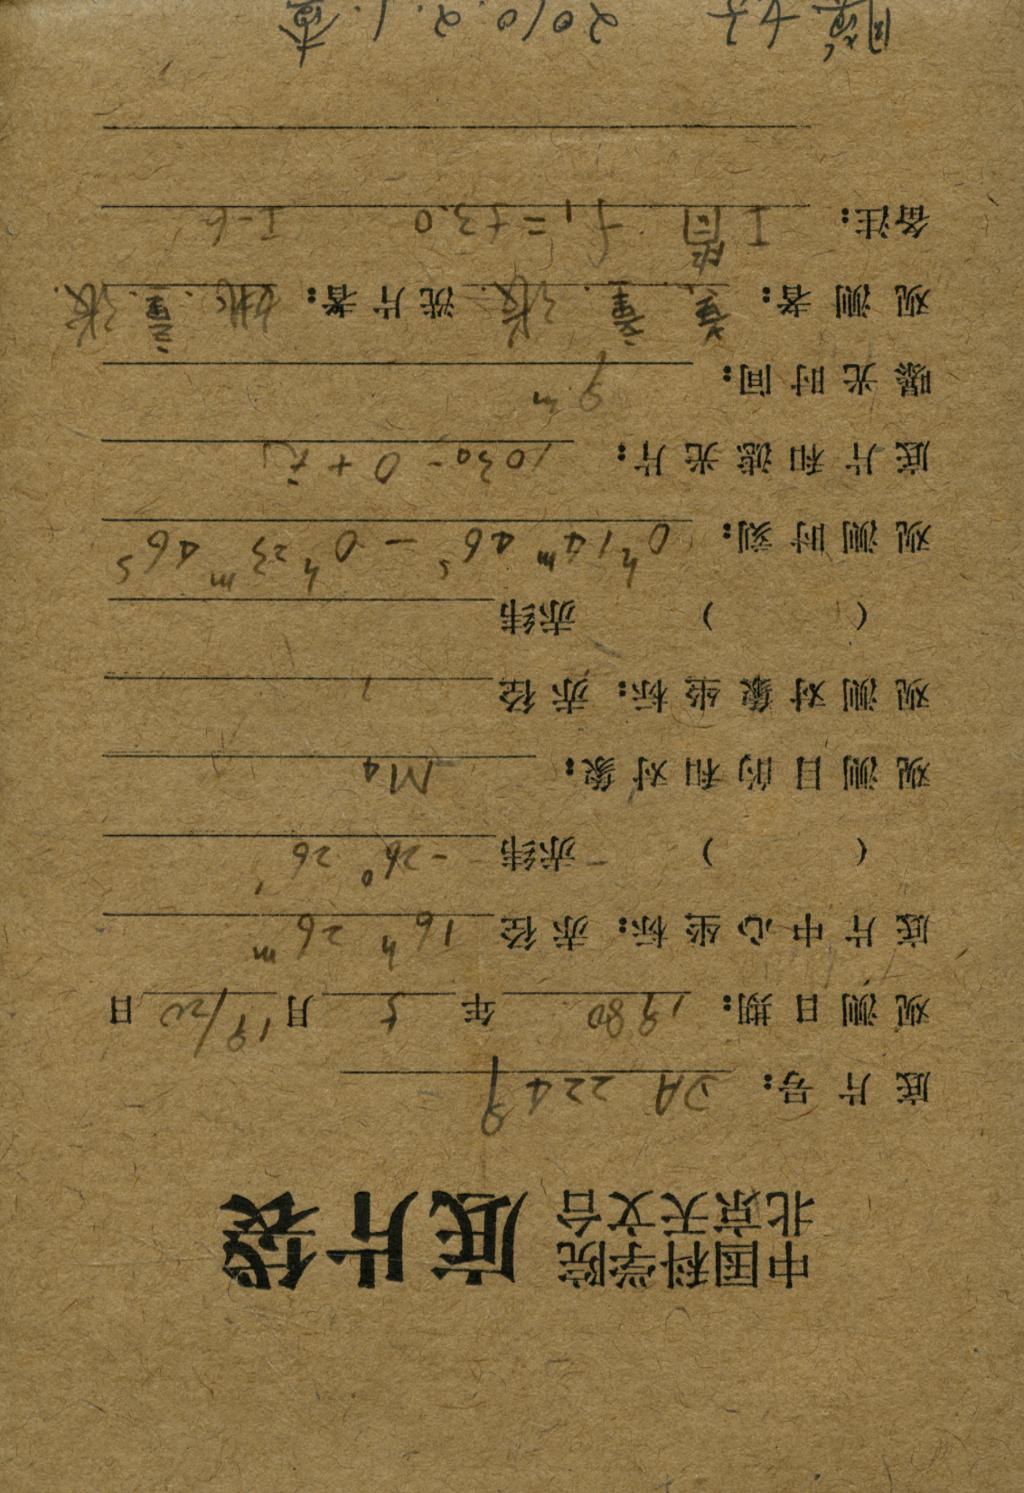 中国科学院
北京天文台 底片袋
底片号： DA 2249
观测日期： 1980 年 5 月 19/20 日
底片中心坐标：赤径 16h 26m
（ ） 赤纬 -26° 26′
观测目的和对象： M4
观测对象坐标：赤径
（ ） 赤纬
观测时刻： 0h14m46s - 0h23m46s
底片和滤光片： 103a-O +
曝光时间： 9m
观测者： 童. 张. 洗片者： 姚. 童. 张.
备注： I 间 f1=+3.0 I-6
膜好 2010.2.1. 查